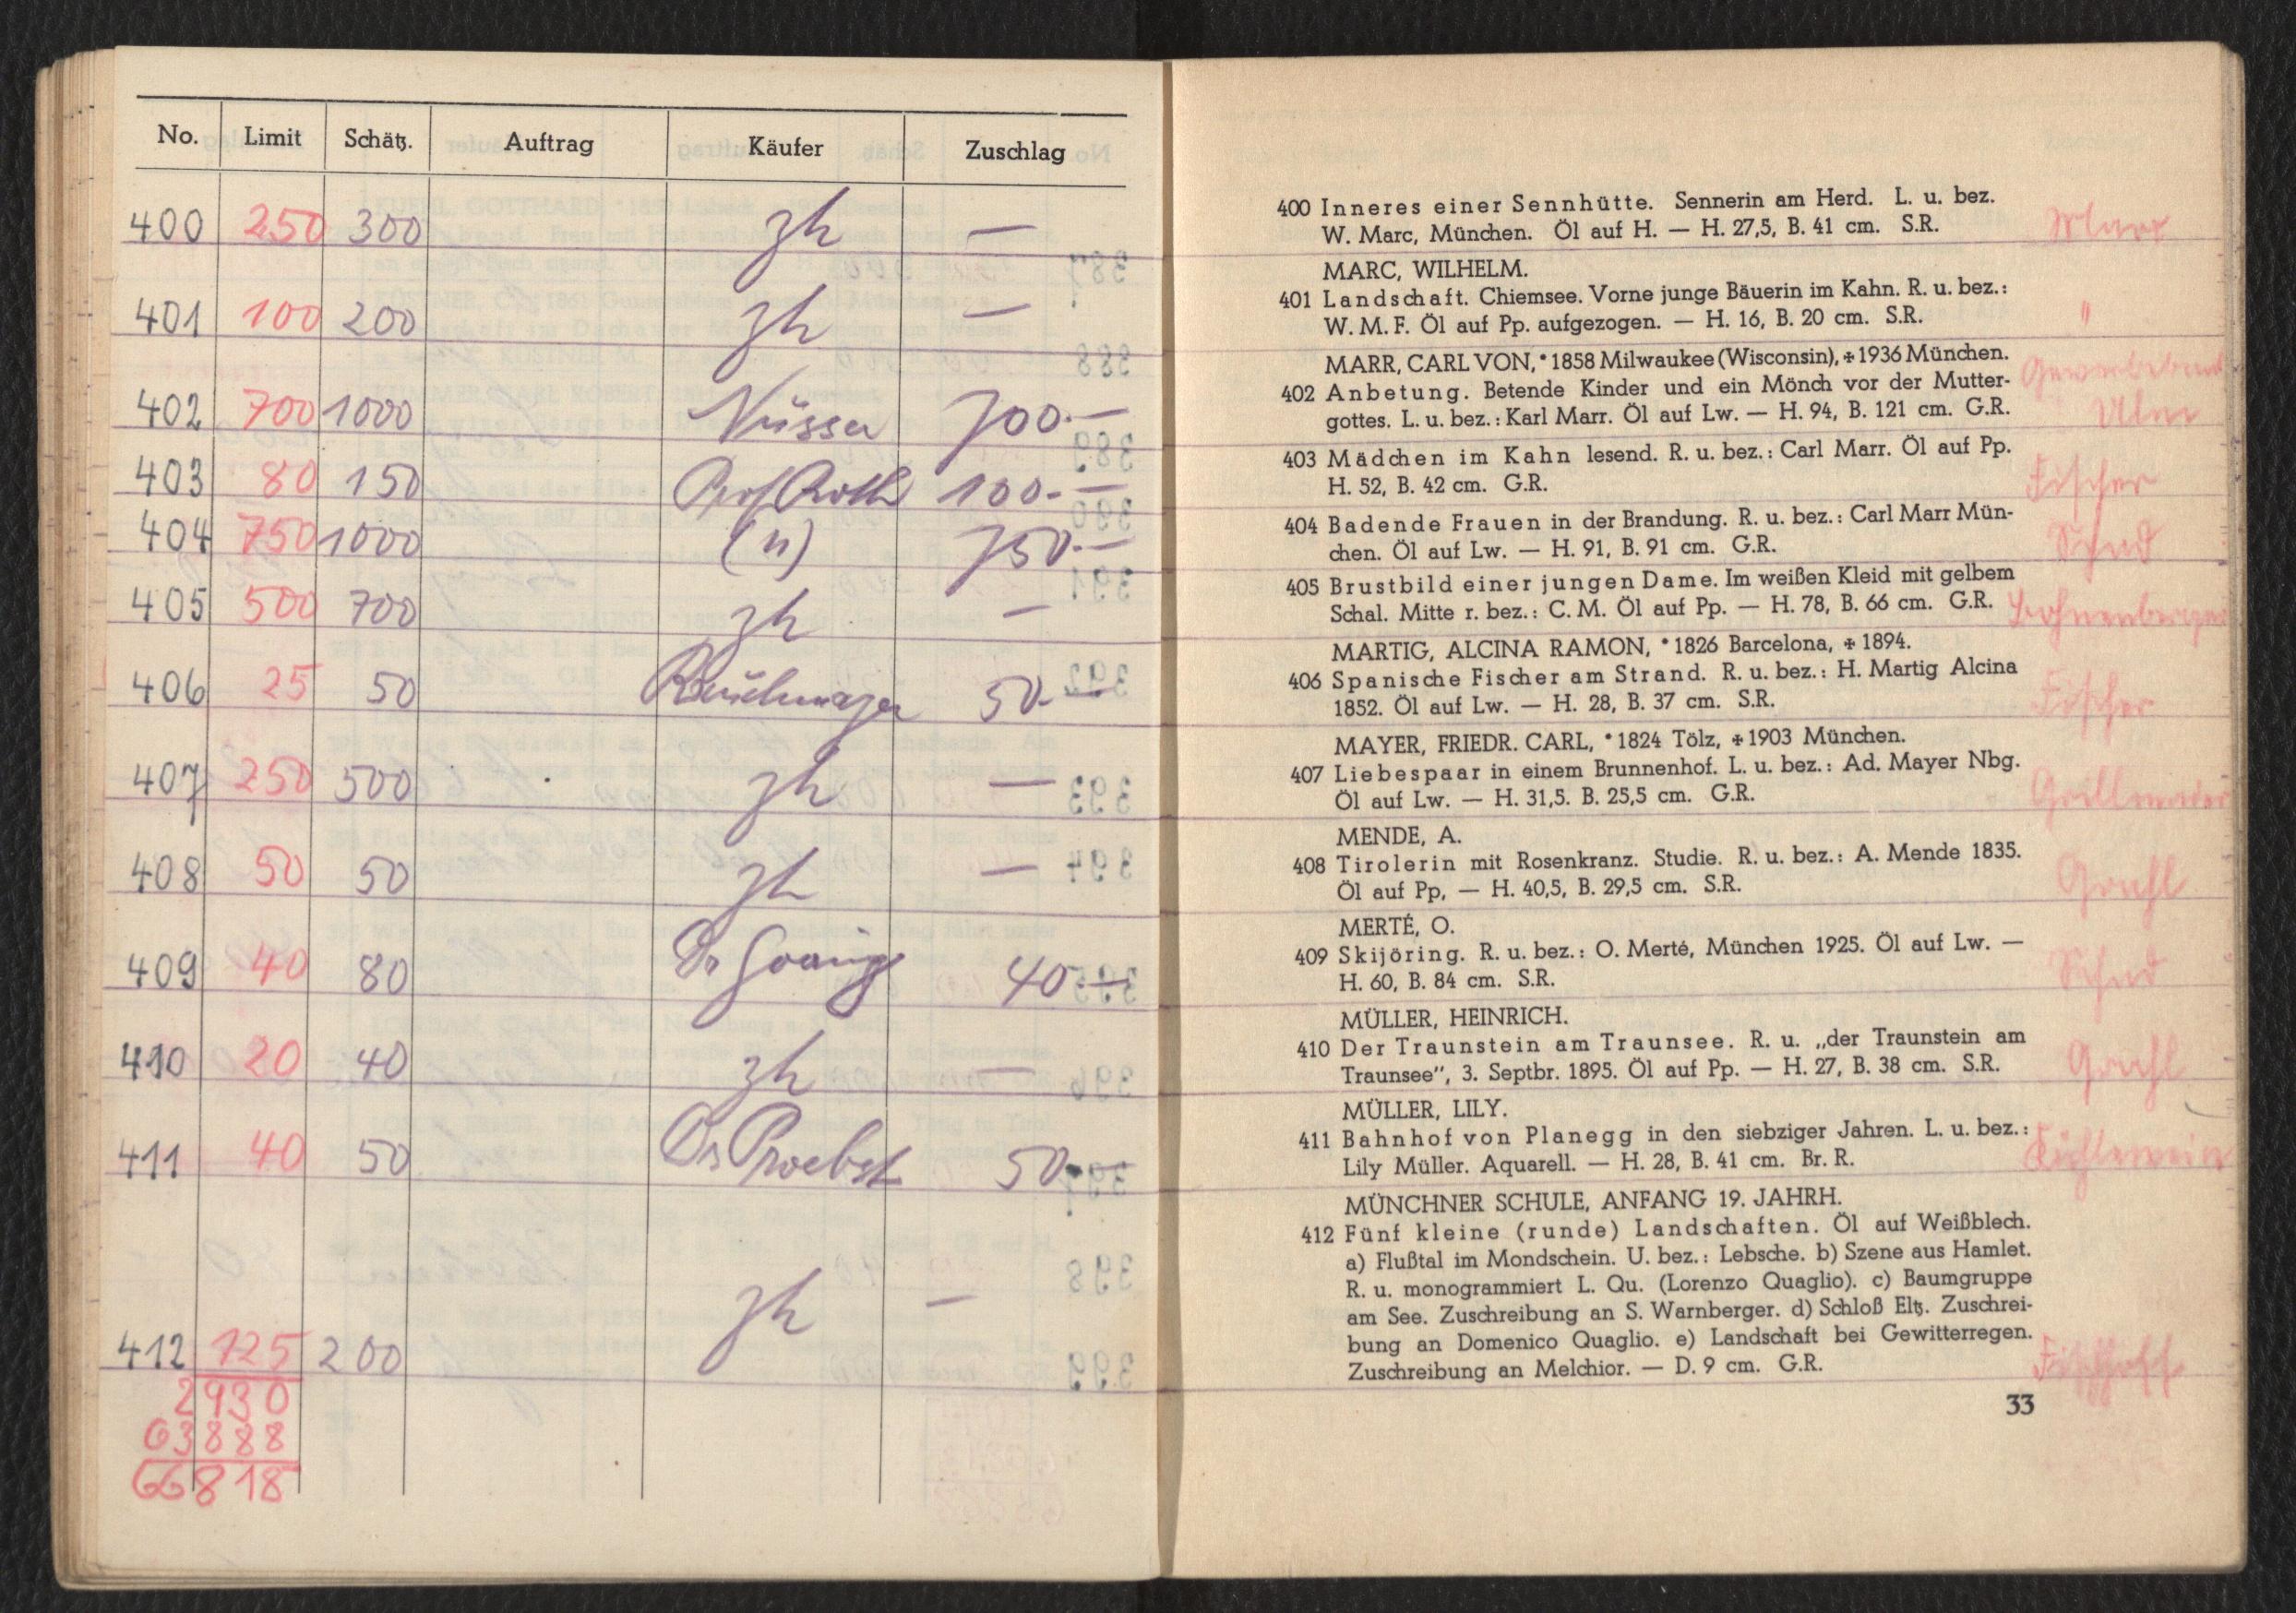 No. Limit Schätz. Auftrag Käufer Zuschlag
400 250 300 zh —
401 100 200 zh —
402 700 1000 Nüsser 700.—
403 80 150 Prof Roth 100.—
404 750 1000 (n) 750.—
405 500 700 zh —
406 25 50 50.—
407 250 500 zh —
408 50 50 zh —
409 40 80 Dr 40.—
410 20 40 zh —
411 40 50 Dr Proebst 50.—
412 125 200 zh —
2930
63888
66818
400 Inneres einer Sennhütte. Sennerin am Herd. L. u. bez.
W. Marc, München. Öl auf H. — H. 27,5, B. 41 cm. S.R. Marx
MARC, WILHELM.
401 Landschaft. Chiemsee. Vorne junge Bäuerin im Kahn. R. u. bez.:
W. M. F. Öl auf Pp. aufgezogen. — H. 16, B. 20 cm. S.R. "
MARR, CARL VON, * 1858 Milwaukee (Wisconsin), ✠ 1936 München.
402 Anbetung. Betende Kinder und ein Mönch vor der Mutter-
gottes. L. u. bez.: Karl Marr. Öl auf Lw. — H. 94, B. 121 cm. G.R. Ulm
403 Mädchen im Kahn lesend. R. u. bez.: Carl Marr. Öl auf Pp.
H. 52, B. 42 cm. G.R. Fischer
404 Badende Frauen in der Brandung. R. u. bez.: Carl Marr Mün-
chen. Öl auf Lw. — H. 91, B. 91 cm. G.R.
405 Brustbild einer jungen Dame. Im weißen Kleid mit gelbem
Schal. Mitte r. bez.: C. M. Öl auf Pp. — H. 78, B. 66 cm. G.R. Bohnenberger
MARTIG, ALCINA RAMON, * 1826 Barcelona, ✠ 1894.
406 Spanische Fischer am Strand. R. u. bez.: H. Martig Alcina
1852. Öl auf Lw. — H. 28, B. 37 cm. S.R. Fischer
MAYER, FRIEDR. CARL, * 1824 Tölz, ✠ 1903 München.
407 Liebespaar in einem Brunnenhof. L. u. bez.: Ad. Mayer Nbg.
Öl auf Lw. — H. 31,5. B. 25,5 cm. G.R. Grillmeier
MENDE, A.
408 Tirolerin mit Rosenkranz. Studie. R. u. bez.: A. Mende 1835.
Öl auf Pp, — H. 40,5, B. 29,5 cm. S.R.
MERTÉ, O.
409 Skijöring. R. u. bez.: O. Merté, München 1925. Öl auf Lw. —
H. 60, B. 84 cm. S.R.
MÜLLER, HEINRICH.
410 Der Traunstein am Traunsee. R. u. „der Traunstein am
Traunsee”, 3. Septbr. 1895. Öl auf Pp. — H. 27, B. 38 cm. S.R.
MÜLLER, LILY.
411 Bahnhof von Planegg in den siebziger Jahren. L. u. bez.:
Lily Müller. Aquarell. — H. 28, B. 41 cm. Br. R.
MÜNCHNER SCHULE, ANFANG 19. JAHRH.
412 Fünf kleine (runde) Landschaften. Öl auf Weißblech.
a) Flußtal im Mondschein. U. bez.: Lebsche. b) Szene aus Hamlet.
R. u. monogrammiert L. Qu. (Lorenzo Quaglio). c) Baumgruppe
am See. Zuschreibung an S. Warnberger. d) Schloß Eltz. Zuschrei-
bung an Domenico Quaglio. e) Landschaft bei Gewitterregen.
Zuschreibung an Melchior. — D. 9 cm. G.R.
33